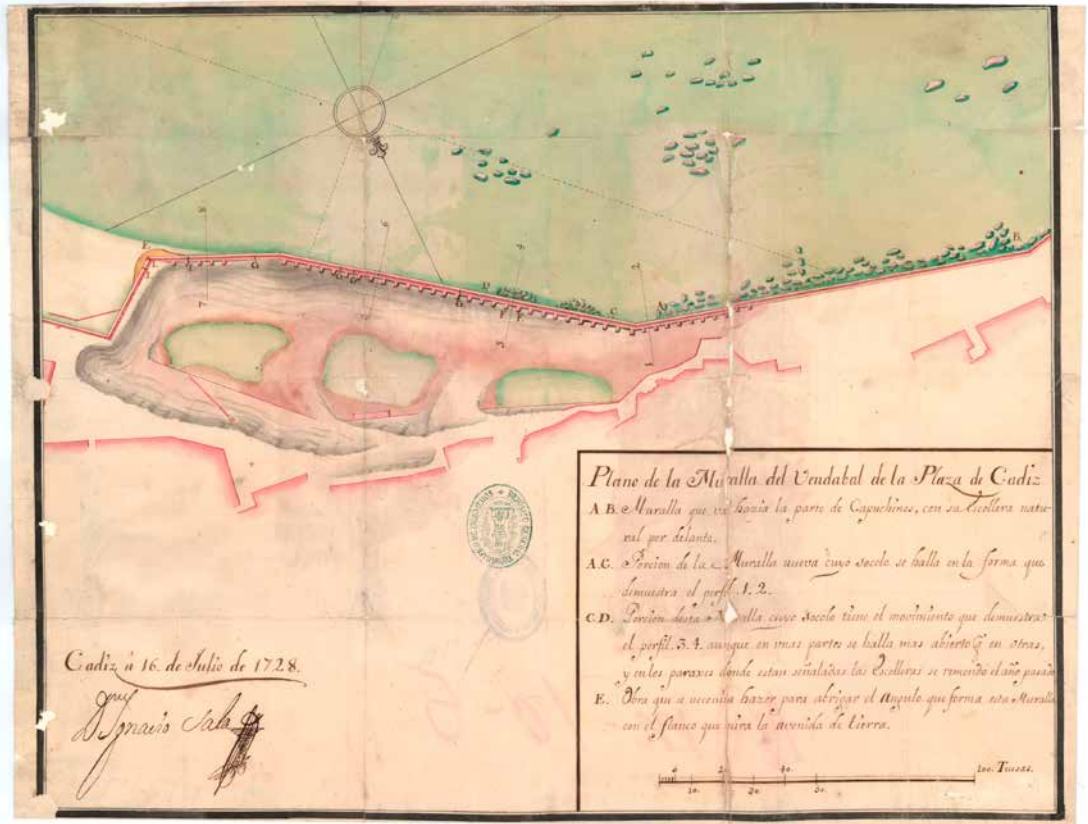 Plano de la Muralla del Vendabal de la Plaza de Cadiz
A.B. Muralla que va hazia la parte de Capuchinos, con su Escollera natu-
ral por delante.
A.C. Porcion de la Muralla nueva cuyo socolo se halla en la forma que
dimuestra el perfil. 1. 2.
C.D. Porcion desta Muralla cuyo socolo tiene el movimiento que demuestra
el perfil. 3. 4. aunque en unas partes se halla mas abierto q̃ en otras,
y en los paraxes donde estan señaladas las Escolleras se remendó el año pasado
E. Obra que se necesita hazer para abrigar el Angulo que forma esta Muralla
con el flanco que mira la avenida de tierra.
Cadiz à 16. de Julio de 1728.
Dn Ignacio Sala
100. Tuesas.